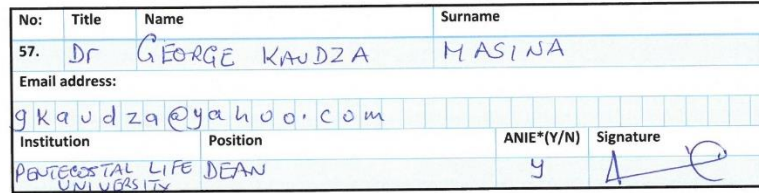 No: Title Name Surname
57. Dr GEORGE KAUDZA MASINA
Email address:
gkaudza@yahoo.com
Institution Position ANIE*(Y/N) Signature
PENTECOSTAL LIFE UNIVERSITY DEAN y